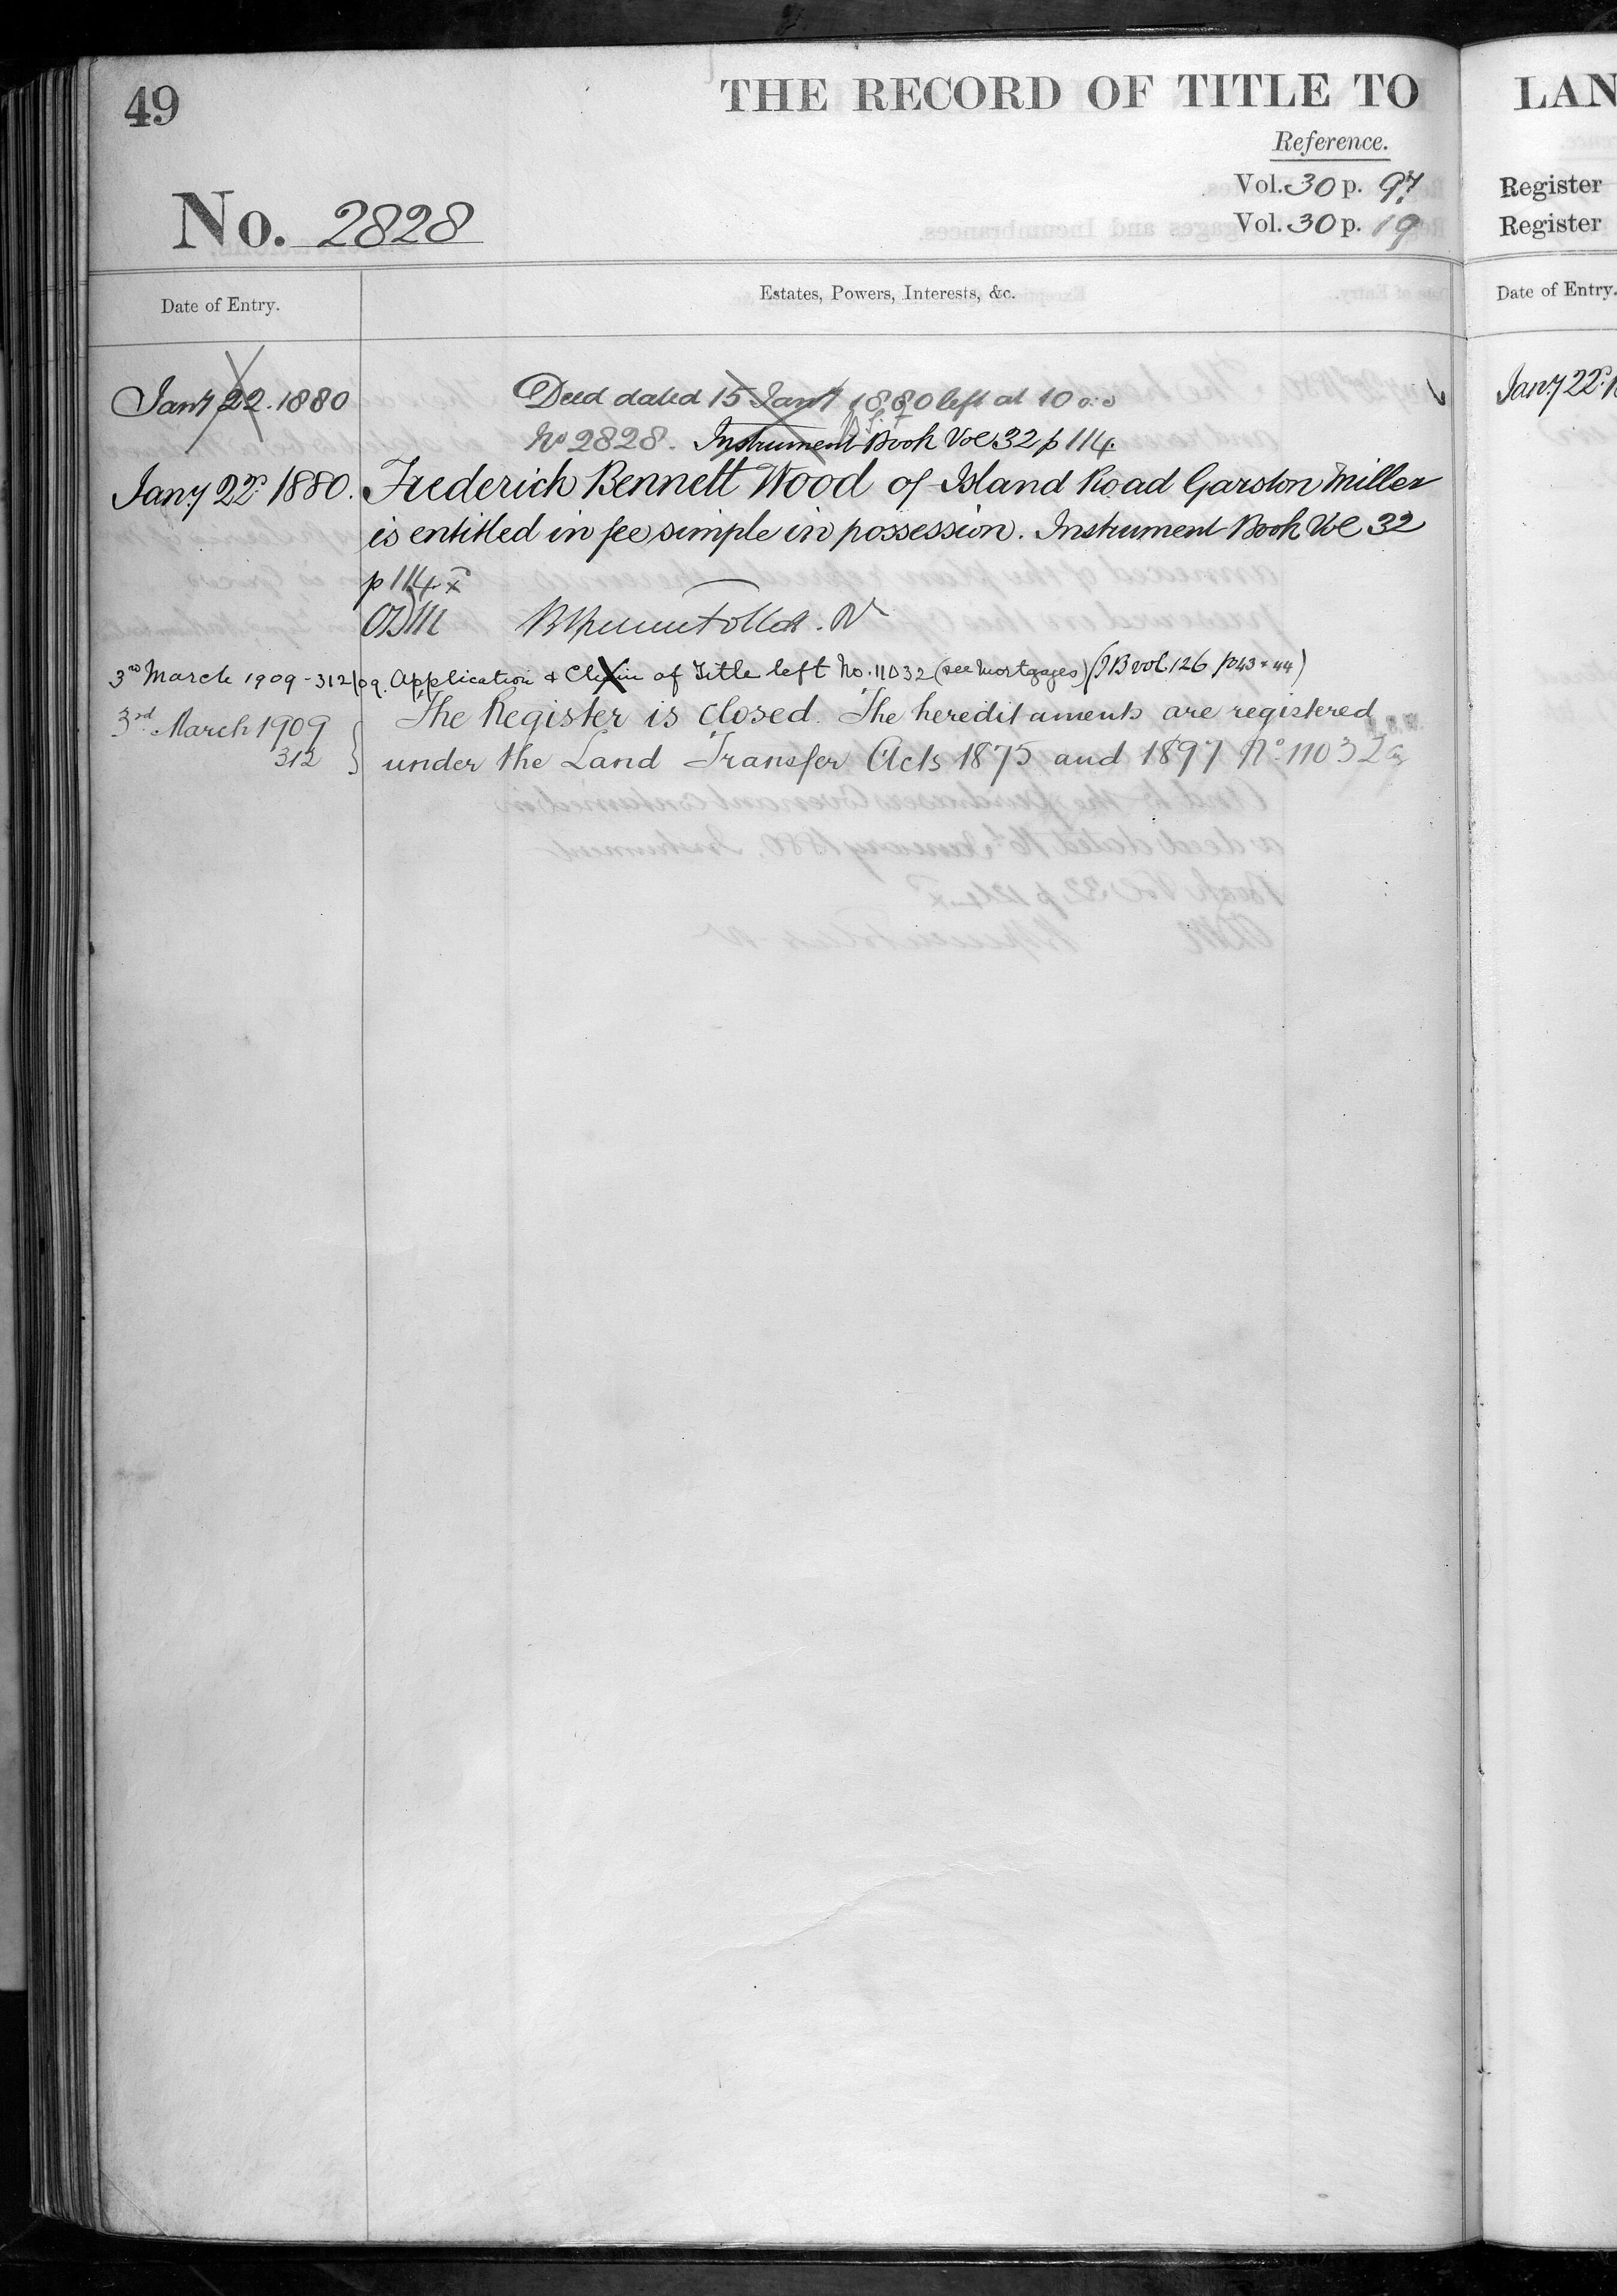 49
THE RECORD OF TITLE TO
Reference.
Vol. 30 p. 97
Vol. 30 p. 19
No. 2828
Date of Entry.
Estates, Powers, Interests, &c.
Jany 22. 1880
Deed dated 15 Jany 1880 left at 10
No 2828. Instrument Book Vol 32 p 114.
Jany 22d 1880. Frederick Bennett Wood of Island Road Garston Miller
is entitled in fee simple in possession. Instrument Book Vol 32
p 114
3rd March 1909 - 312/09. Application & Claim of Title left No. 11032 (see Mortgages) (IB vol. 126 p 43 & 44)
3rd March 1909
312
The Register is closed. The hereditaments are registered
under the Land Transfer Acts 1875 and 1897 No. 11032
LAN
Register
Register
Date of Entry.
Jany 22d